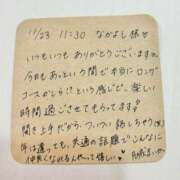 11/23 11:30 なかよし様♡
いつもいつも ありがとうございます
今日もあっという間で 本当に ロング
コースかしら!? という感じで、楽しい
時間 過ごさせてもらってます♪
聞き上手だから、ついつい 話しちゃう(笑)
年は違っても、共通の話題で こんなに
仲良くなれるんやって 嬉しい♥